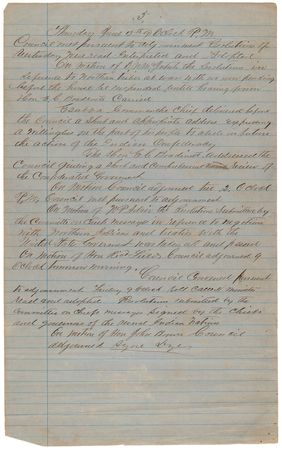 3
Thursday June 15th 9 Oclock A.M.
Council met pursuant to adjournment
yesterday was read Interpreted and adopted
On motion of the Resolution in
reference to Northern tribes at war with us now pending
before the house be suspended until hearing from
Hon E C Boudinot Carried
Comanche Chief delivered before
the Council a Short and appropriate address expressing
a willingness on the part of his people to abide in future
the action of the Indian Confederacy
The Hon E C Boudinot addressed the
Council giving a Short and review of
the Confederate Government
On motion Council adjourned till 2 Oclock
P.M. Council met pursuant to adjournment
On motion of W P Adair the resolution submitted by
the Committee on Chiefs messages in reference to
with Northern Indians and treaties with the
United States Government was taken up and passed
On motion of Hon Fields Council adjourned 9
Oclock tomorrow morning.
Council Convened pursuant
to adjournment Friday 9 Oclock Roll Called minutes
read and adopted Resolution submitted by the
Committee on Chiefs messages signed by the Chiefs
and governors of the several Indian Nations
On motion of Hon John Council
adjourned Syne Dye.